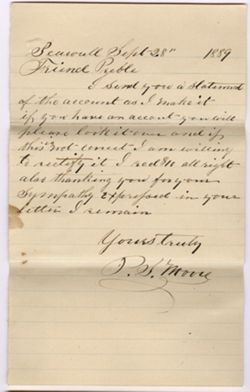 Seawall Sept 28" 1889
Friend Preble
I send you a statement
of the account as I make it
if you have an account you will
please look it over and if
this not correct I am willing
to rectify it I all right
also thanking you for your
Sympathy expressed in your
letter I remain
Yours truly
P. S. Moore